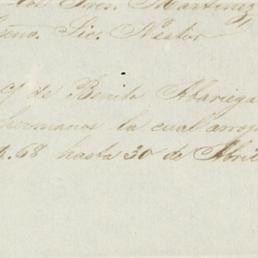 los Sres. Martinez
Sic. Nestor
y de Benito Abariega
hermanos la cual arroj
68 hasta 30 de Abril